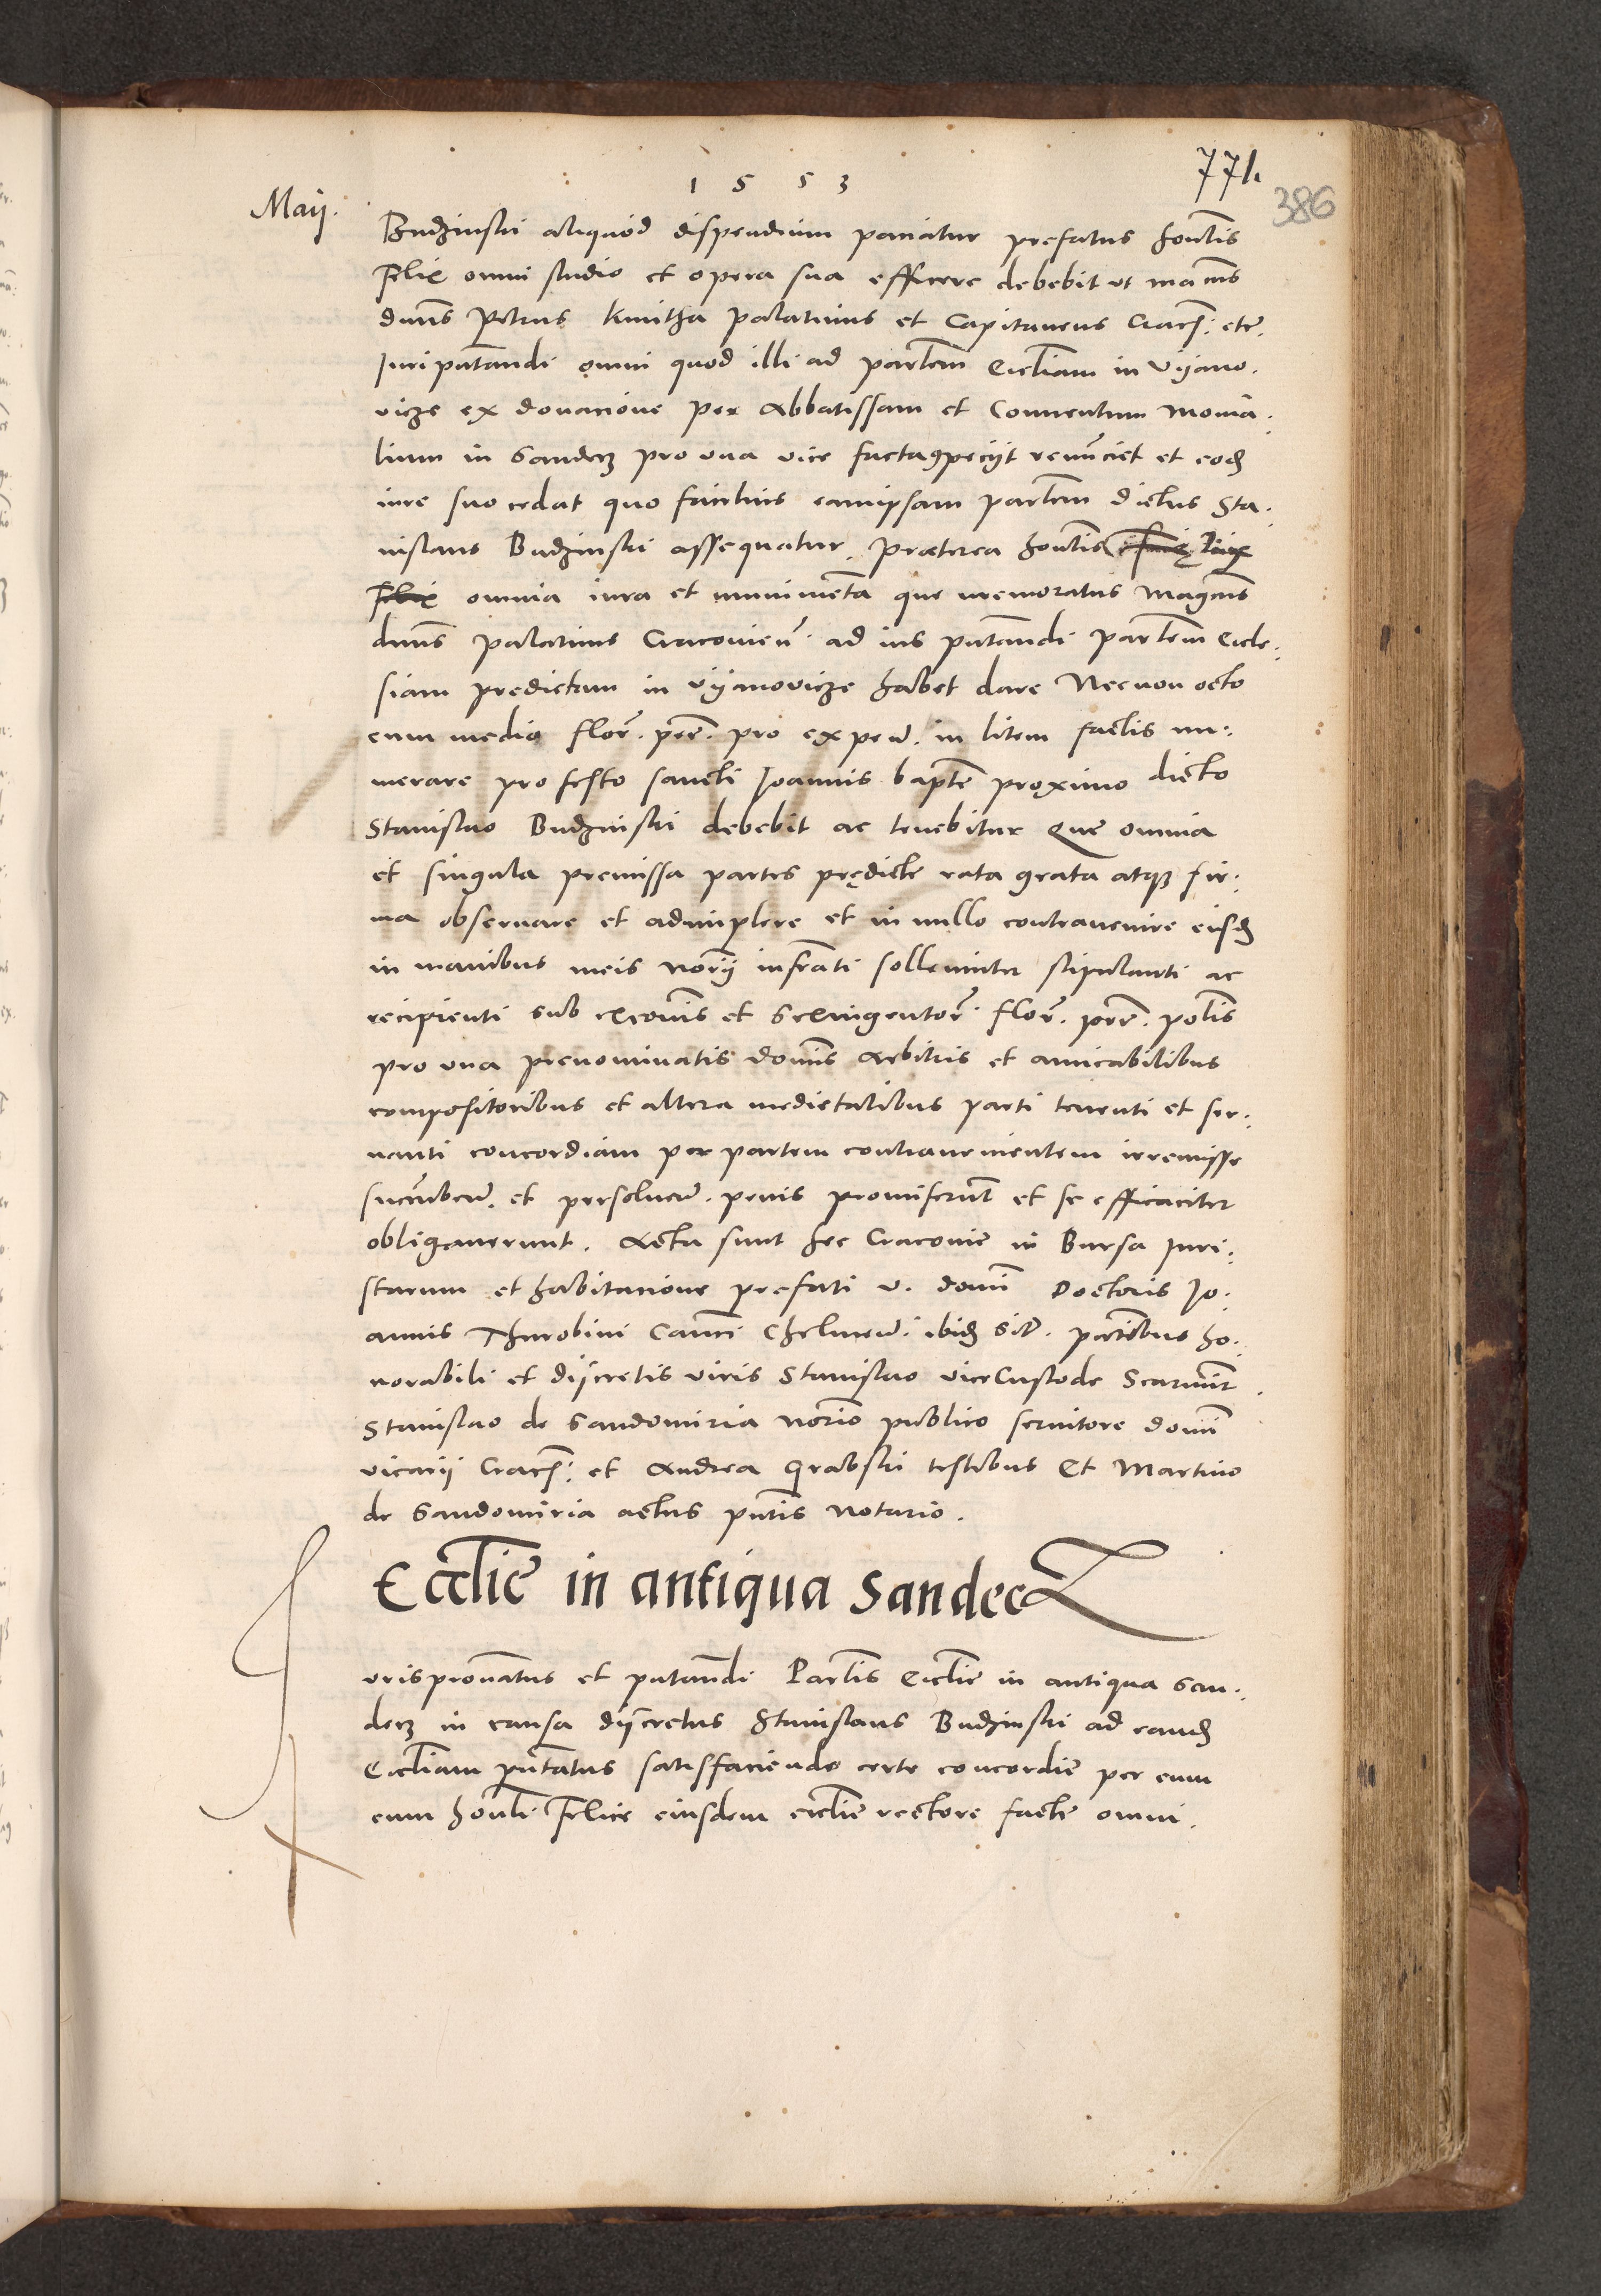 1553
771.
386
Maij.
Budzinski aliquod dispendium paciatur prefatus honlis
Felix omni studio et opera sua efficere debebit ut mācus
dnns Petrus Kmitha palatinus et Capitaneus Cracn̄: etc̄.
Juri pn̄tandi omni quod illi ad partem Eccliam in Vijano.
vicze ex donacione per Abbatissam et Conuentum Monia.
lium in Sandecz pro una vice facta competijt renunciet et eodē
iure suo cedat quo facilius eamipsam partem dictus Sta.
nislaus Budzinski assequatur. Præterea honlis
Felix omnia iura et munimenta que memoratus Magcus
dnns palatinus Cracovien̄. ad ius pn̄tandi partem Eccle.
siam predictam in Vijanovicze habet dare Necnon octo
cum medio flor̄. per̄. pro expen̄. in litem factis nu.
merare pro festo sancti Joannis bapte proximo dicto
Stanislao Budzinski debebit ac tenebitur Que omnia
et singula premissa partes prędicte rata grata atq3 fir.
ma obseruare et adimplere et in nullo contrauenire eisdē
in manibus meis norij infrati sollenniter stipulanti ac
recipienti sub et Sexingentor̄. flor̄. per̄. polis
pro una prenominatis donis Arbitris et amicabilibus
compositoribus et altera medietatibus parti tenenti et ser.
uanti concordiam per partem contrauenientem irremisse
sucumben̄. et persoluen̄. penis promiserunt et se efficaciter
obligauerunt. Acta sunt hec Cracovie in Bursa Juri.
starum et habitacione prefati v. domi Doctoris Jo.
annis Thurobini Canci Chelmen̄. ibidē sit̄. pn̄tibus ho.
norabili et discretis viris Stanislao viceCustode
Stanislao de Sandomiria norio publico seruitore domi
vicarij Cracn̄: et Andrea Grabski testibus Et Martino
de Sandomiria actus pn̄tis notario.
Ecclie in antiqua Sandecz
J
urispronatus et pn̄tandi Partis Ecclie in antiqua San.
decz in causa discretus Stanislaus Budzinski ad eandē
Eccliam pn̄tatus satisfaciendo certe concordie per eum
cum honli Felice eiusdem ecclie rectore facte omni.